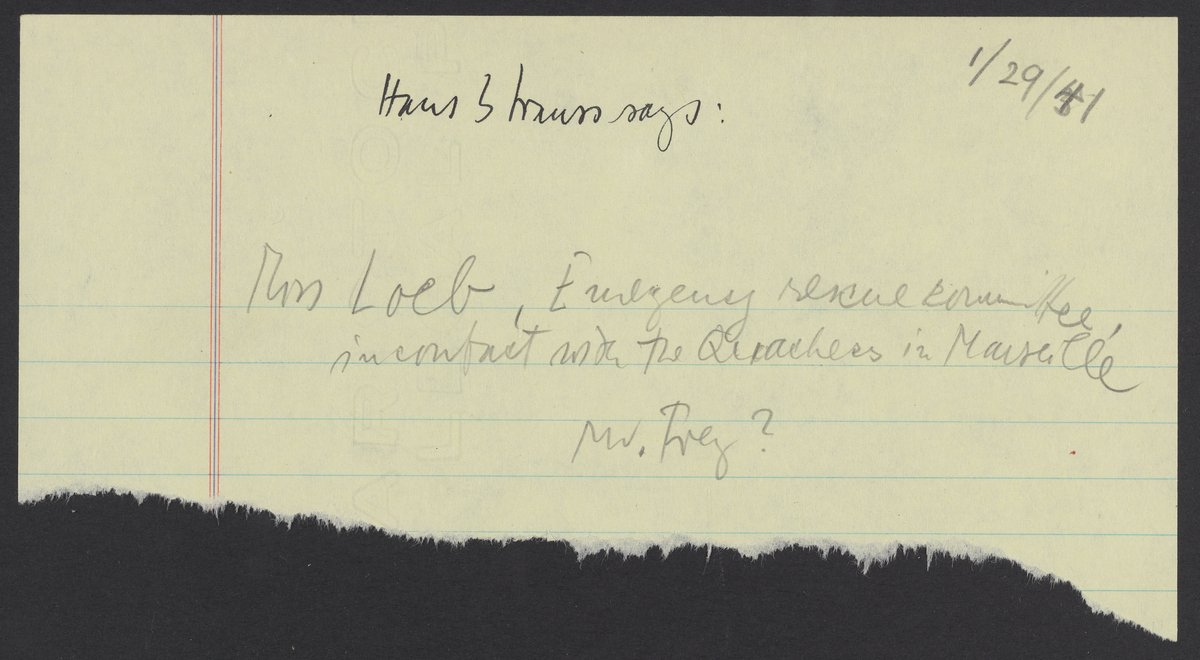 1/29/41
Hans Strauss says:
Miss Loeb, Emergency rescue committee,
in contact with the Quackers in Marseille
Mr. Frey?